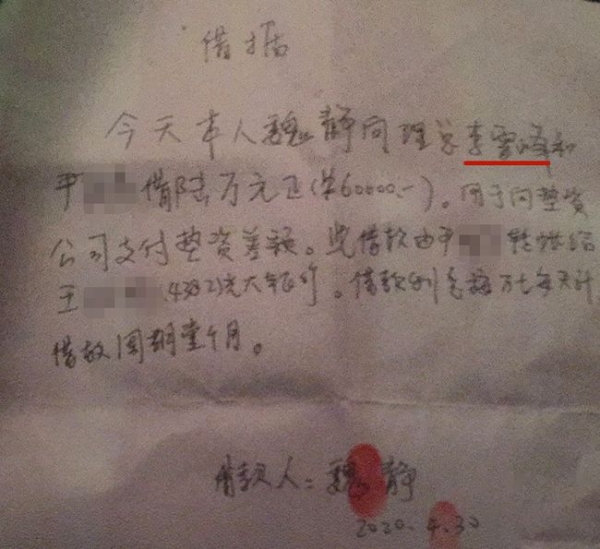 借据
今天本人魏静向理总李雪峰和
尹 借陆万元正(¥60000.-)。用于向垫资
公司支付垫资差额。此借款由尹 转账给
王 。借款利息按万七每天计
借款周期壹个月。
借款人:魏静
2020.4.30